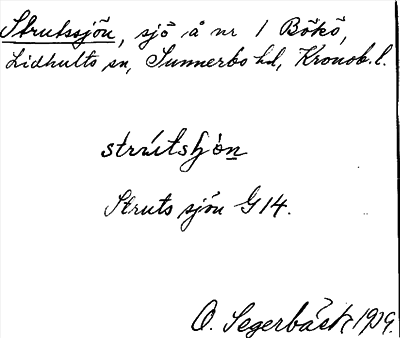 Strutssjön, sjö å nr 1 Bökö,
Lidhults sn, Sunnerbo hd, Kronob. l.
Struts sjön G 14.
O. Segerbäck 1909.